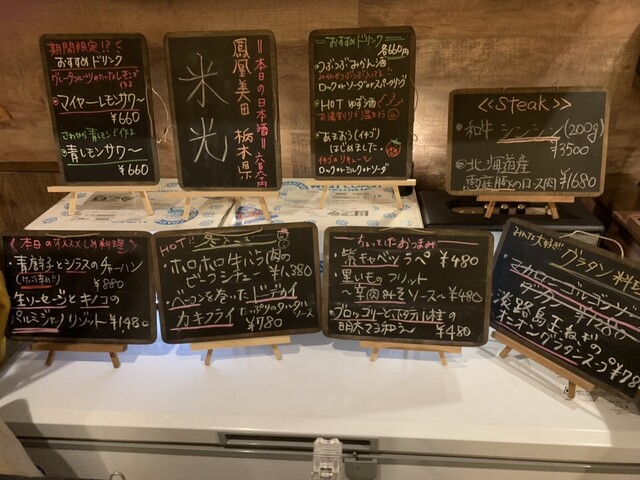 期間限定!?
おすすめドリンク
マイヤーレモンサワー〜
¥660
青レモンサワー〜
¥660
本日の日本酒
鳳凰美田 栃木県
米光
おすすめドリンク
各660円
つぶつぶみかん酒
ロックorソーダorスパークリング
HOT ゆず酒
あまおう(イチゴ)
はじめました・
ロックorミルクorソーダ
≪Steak≫
・和牛 シンシン(200g)
¥3500
北海道産
ロース肉 ¥1680
〈本日のオススメ〆料理〉
・青唐辛子とシラスのチャーハン
¥880
生ソーセージとキノコの
パルミジャーノリゾット ¥1480
HOT!!
ホロホロ牛バラ肉の
ビーフシチュー ¥1,380
ベーコンを巻いたドデカイ
カキフライ たっぷりのタルタルソース
¥780
ちょっとしたおつまみ
・紫キャベツラペ ¥480
・里いものフリット
〜辛肉みそソース〜 ¥480
・ブロッコリーとホタテ貝柱の
明太マヨ和え〜 ¥480
みんな大好き!! グラタン料理
マカロニゴルゴンゾーラ
グラタン ¥1280
淡路島玉ねぎの
オニオングラタンスープ ¥78